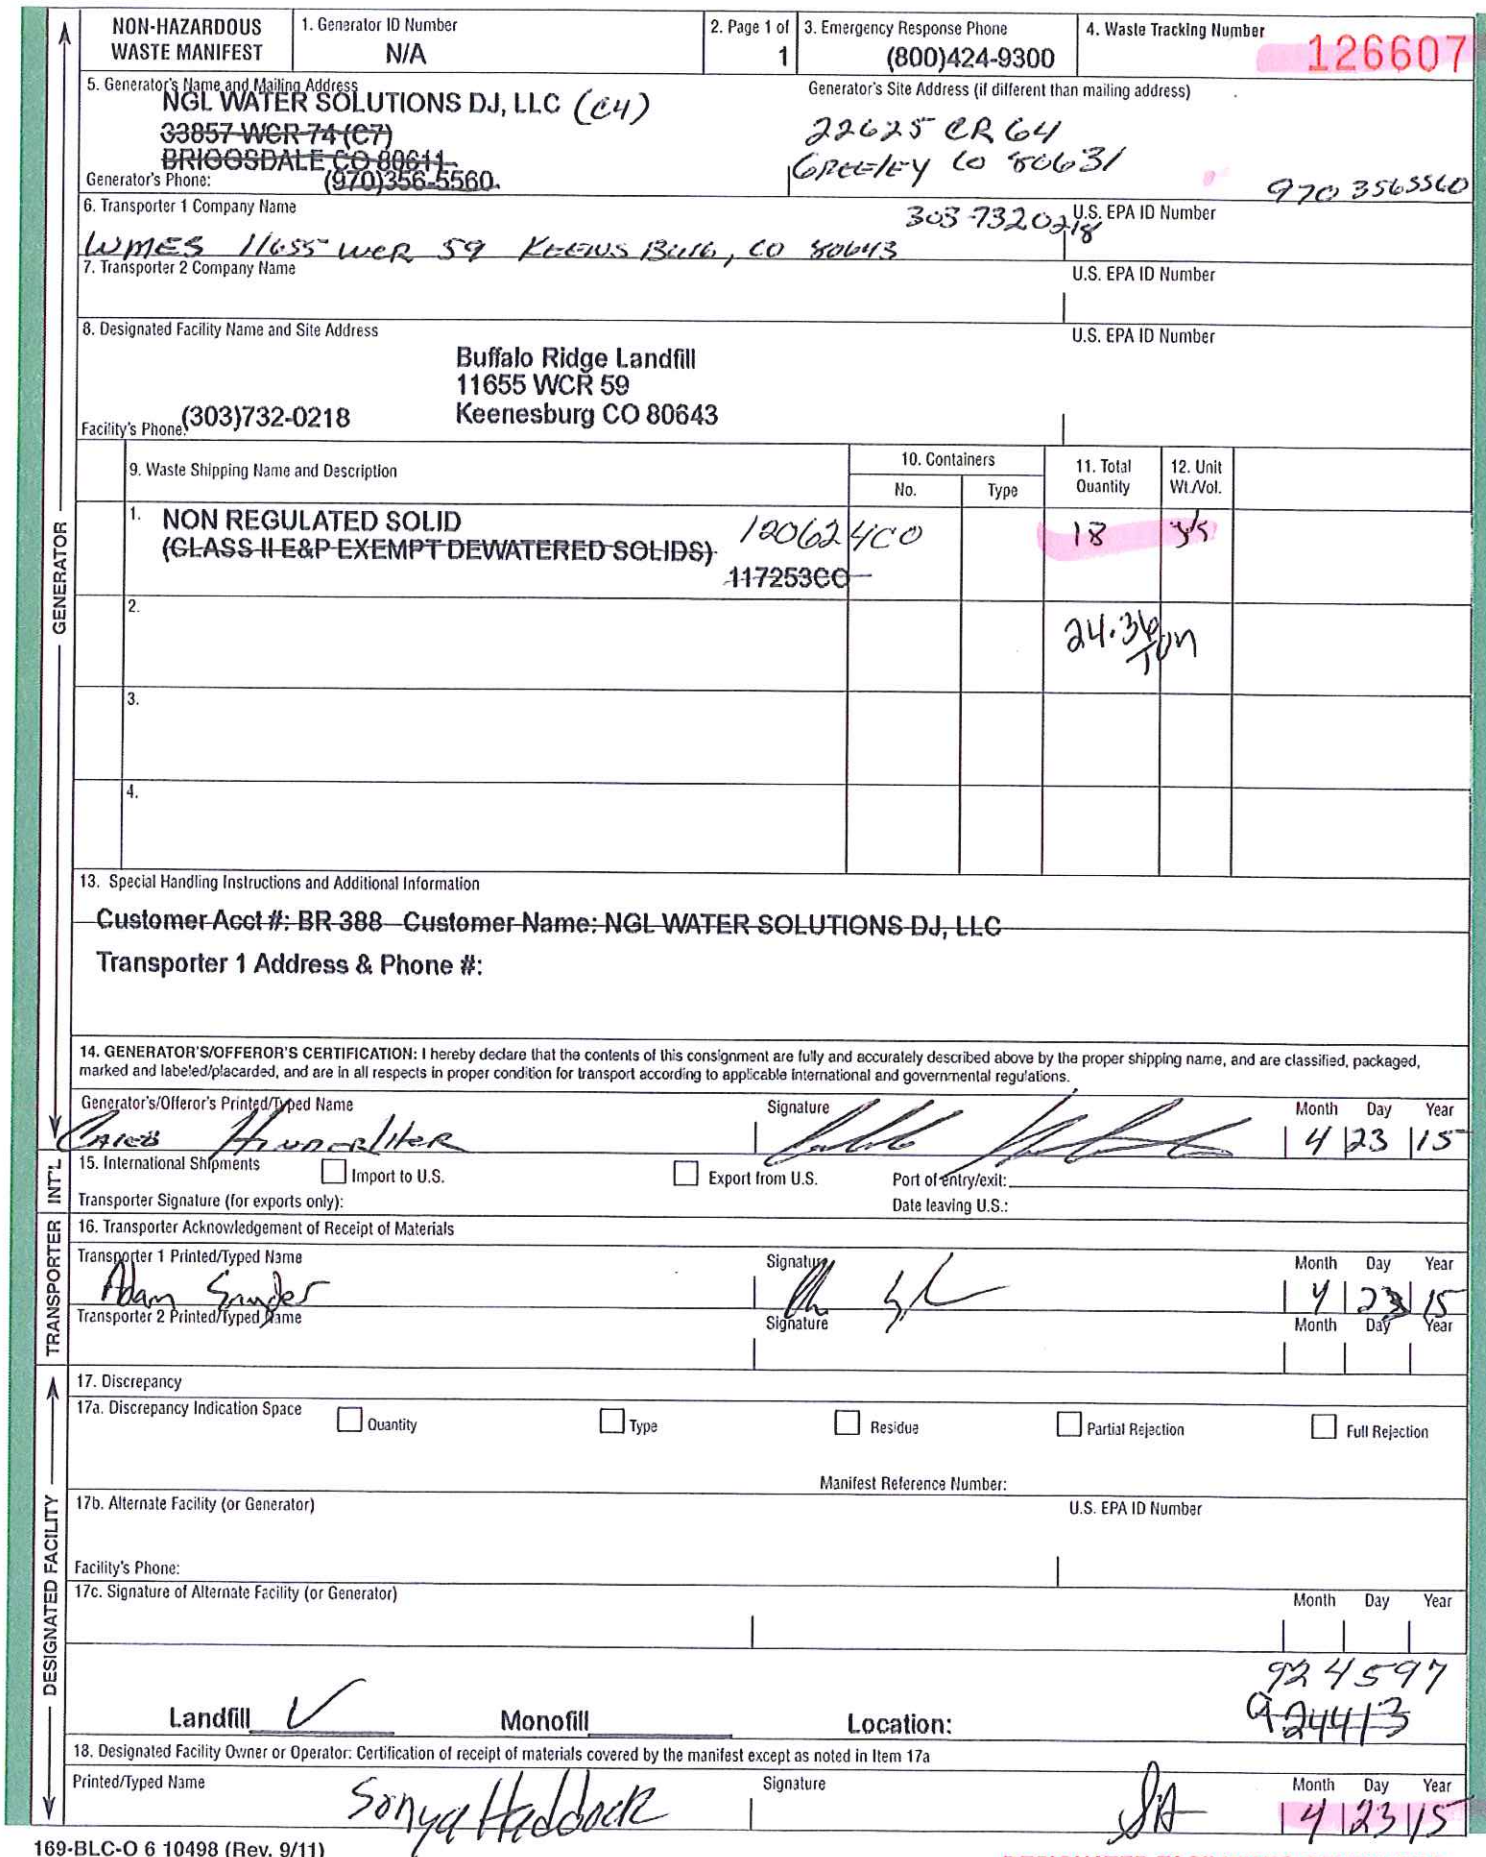 NON-HAZARDOUS WASTE MANIFEST
1. Generator ID Number
N/A
2. Page 1 of
1
3. Emergency Response Phone
(800)424-9300
4. Waste Tracking Number
126607
5. Generator's Name and Mailing Address
NGL WATER SOLUTIONS DJ, LLC (C4)
33857 WCR 74 (C7)
BRIGGSDALE CO 80611
Generator's Phone: (970)356-5560
Generator's Site Address (if different than mailing address)
22625 CR 64
GREELEY CO 80631
970 3565560
6. Transporter 1 Company Name
303-7320218
U.S. EPA ID Number
WMES 11655 WCR 59 KEENSBURG, CO 80643
7. Transporter 2 Company Name
U.S. EPA ID Number
8. Designated Facility Name and Site Address
U.S. EPA ID Number
Buffalo Ridge Landfill
11655 WCR 59
Keenesburg CO 80643
Facility's Phone: (303)732-0218
9. Waste Shipping Name and Description
10. Containers
No.
Type
11. Total Quantity
12. Unit Wt./Vol.
1. NON REGULATED SOLID
(CLASS II E&P EXEMPT DEWATERED SOLIDS)
120624CO
117253CO
18
2.
24.36 TON
3.
4.
13. Special Handling Instructions and Additional Information
Customer Acct #: BR-388 Customer Name: NGL WATER SOLUTIONS DJ, LLC
Transporter 1 Address & Phone #:
14. GENERATOR'S/OFFEROR'S CERTIFICATION: I hereby declare that the contents of this consignment are fully and accurately described above by the proper shipping name, and are classified, packaged,
marked and labeled/placarded, and are in all respects in proper condition for transport according to applicable international and governmental regulations.
Generator's/Offeror's Printed/Typed Name
Signature
Month Day Year
CALEB HUNDERLITER
4 23 15
15. International Shipments
Import to U.S.
Export from U.S.
Port of entry/exit:
Transporter Signature (for exports only):
Date leaving U.S.:
16. Transporter Acknowledgement of Receipt of Materials
Transporter 1 Printed/Typed Name
Signature
Month Day Year
Adam Sander
4 23 15
Transporter 2 Printed/Typed Name
Signature
Month Day Year
17. Discrepancy
17a. Discrepancy Indication Space
Quantity
Type
Residue
Partial Rejection
Full Rejection
Manifest Reference Number:
17b. Alternate Facility (or Generator)
U.S. EPA ID Number
Facility's Phone:
17c. Signature of Alternate Facility (or Generator)
Month Day Year
924597
924413
Landfill
Monofill
Location:
18. Designated Facility Owner or Operator: Certification of receipt of materials covered by the manifest except as noted in Item 17a
Printed/Typed Name
Signature
Month Day Year
Sonya Haddock
4 23 15
169-BLC-O 6 10498 (Rev. 9/11)
GENERATOR
INT'L
TRANSPORTER
DESIGNATED FACILITY